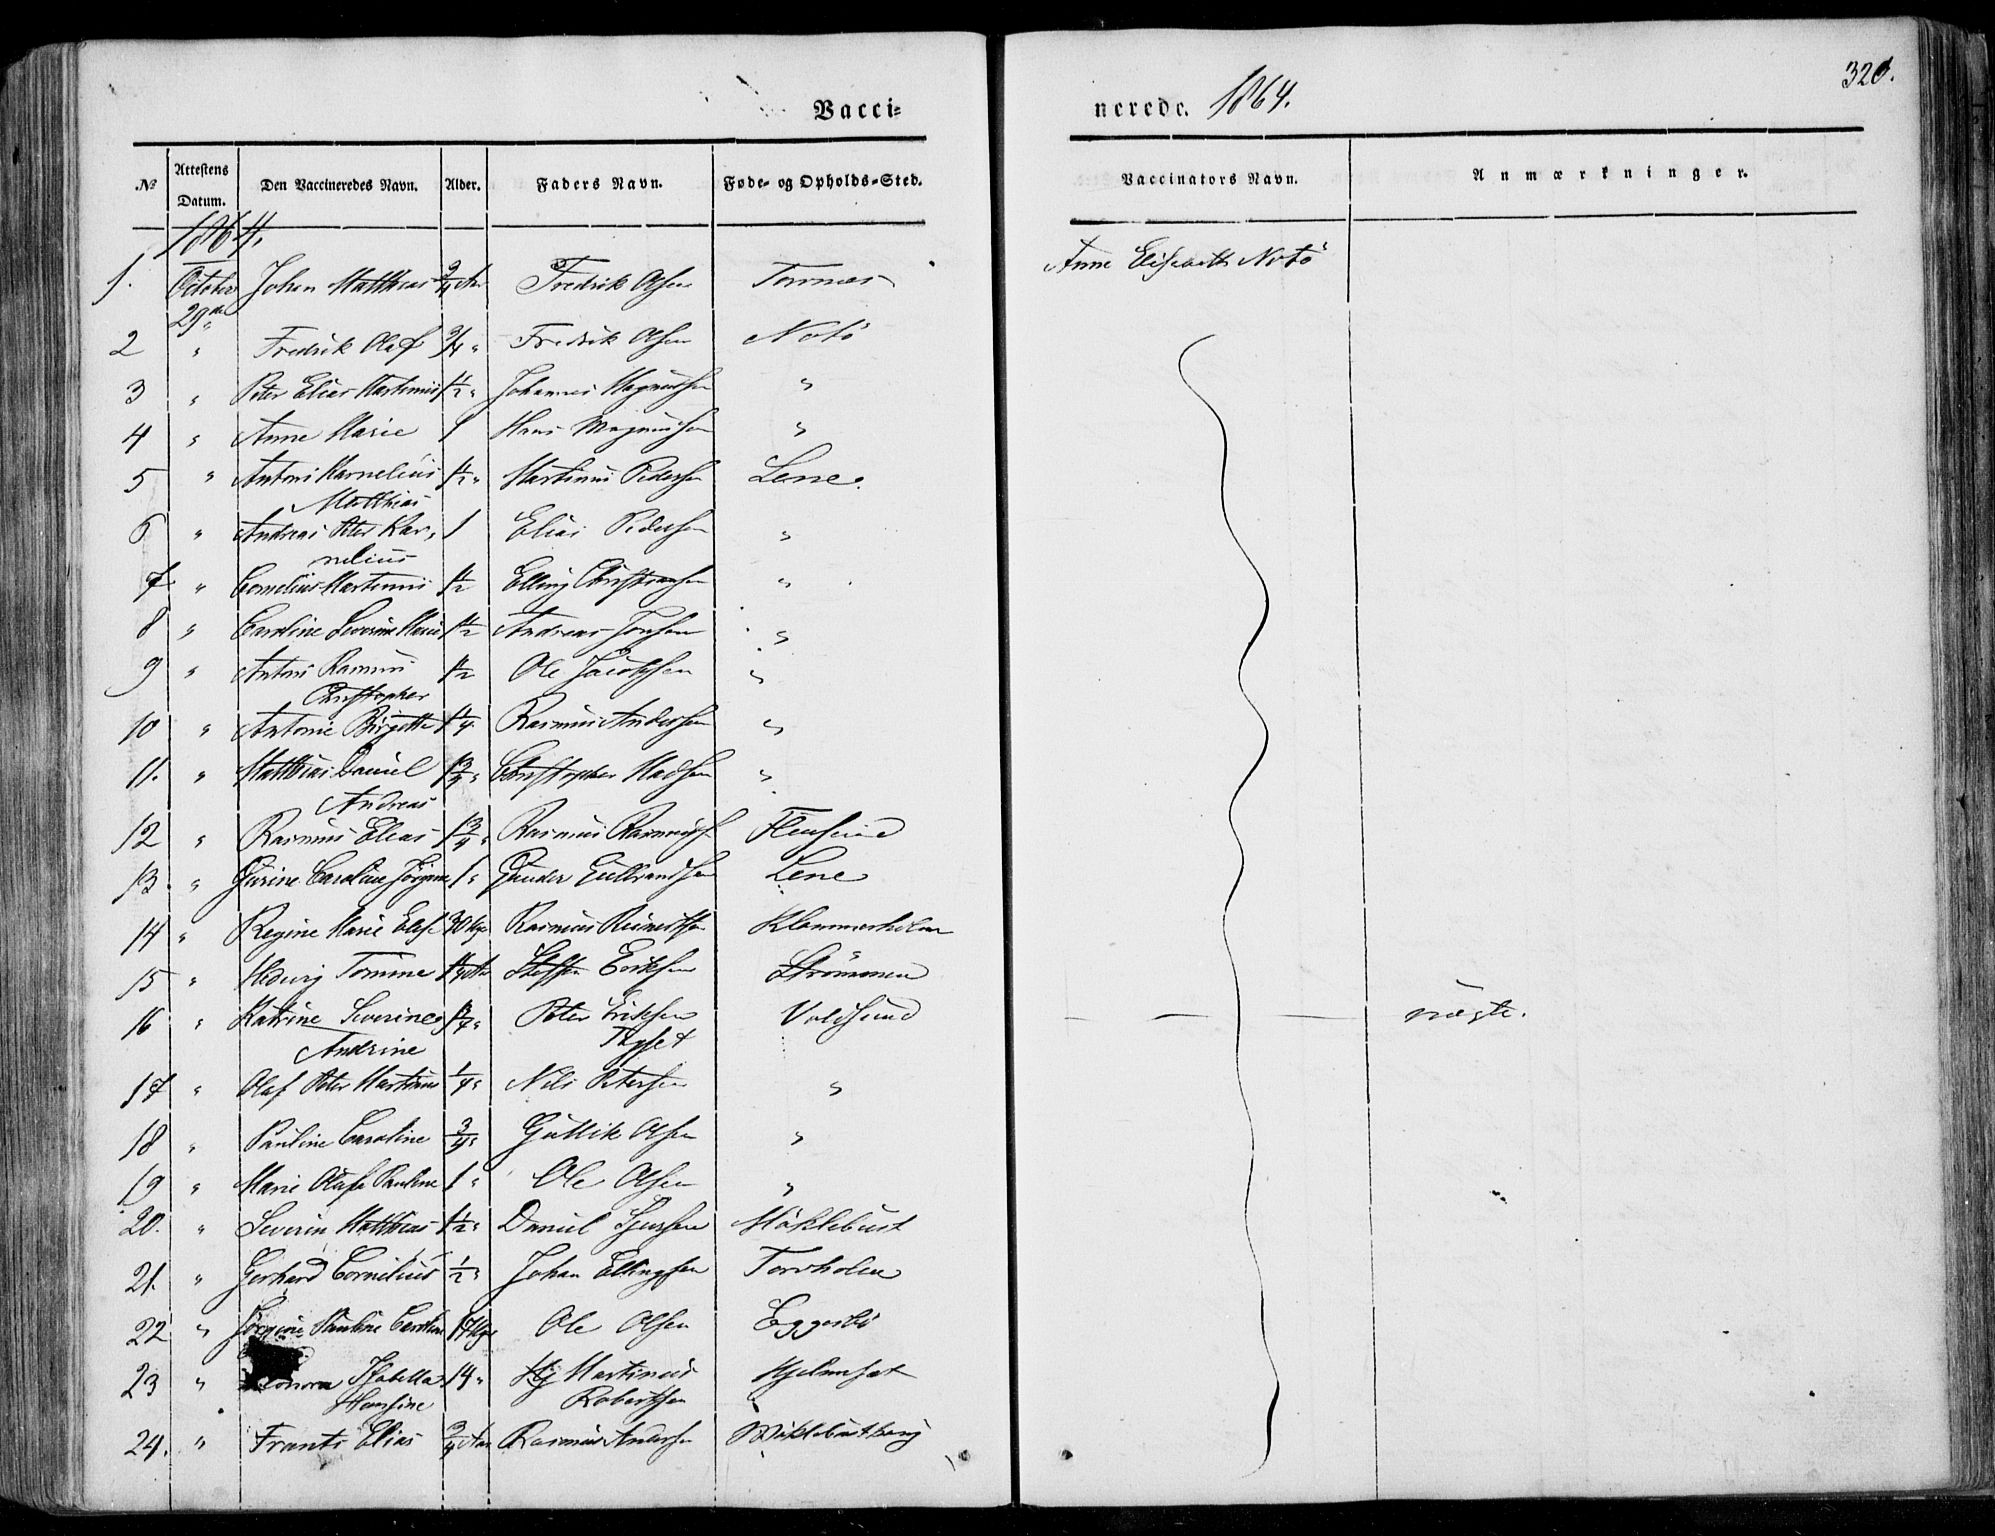 Vacci-
nerede. 1864.
320.
№
Attestens Datum.
Den Vaccineredes Navn.
Alder.
Faders Navn.
Føde- og Opholds-Sted.
Vaccinators Navn.
Anmærkninger.
1864.
1. October 29de Johan Matthias 3/4 Aar Fredrik Olsen Tornnes Anne Elisabeth Notö
2 " Fredrik Olaf 3/4 " Fredrik Olsen Notö
3 " Peter Elias Martinus 1 1/2 " Johannes Magnussen "
4 " Anne Marie 1 Hans Magnussen "
5 " Anton Karnelius 1 1/2 " Martinus Pedersen Lene.
Matthias
6 " Andreas Peter Kar- 1 Elias Pedersen "
nelius
7 " Cornelius Martinus 1 1/2 Elling Christiansen "
8 " Caroline Severine Marie 1 1/2 Andreas Jonsen "
9 " Anton Rasmus 1 1/2 Ole Jacobsen "
Christopher
10 " Antonie Birgitte 1 1/4 Rasmus Andersen "
11. " Matthias Daniel 1 3/4 " Christopher Madsen "
Andreas
12 " Rasmus Elias 1 3/4 " Rasmus Rasmuss.
13. " Caroline Jörgine 1 " Gunder Gulbrandsen Lene
14 " Regine Marie Elise 30 Uger Rasmus Reinertsen
15 " Hedvig Tomine Steffen Eriksen Strömmen
16 " Katrine Severine Peter Eriksen Voldsund nægte.
Andrine
17 " Olaf Peter Martinus 1/4 " Nils Petersen "
18 " Pauline Caroline 3/4 " Guttik Olsen "
19 " Marie Olafa Pauline 1 " Ole Olsen "
20. " Severin Matthias 1 1/2 " Daniel Sjursen Möklebust
21. " Gerhard Cornelius 1/2 " Johan Ellingsen Torvholen
22 " Jörgine Pauline Caroline 17 Uger Ole Olsen Eggesbö
23 " Isabella 14 " Martinus Hjelmset
Hansine Robertsen
24. " Frants Elias 3/4 Aar Rasmus Andersen